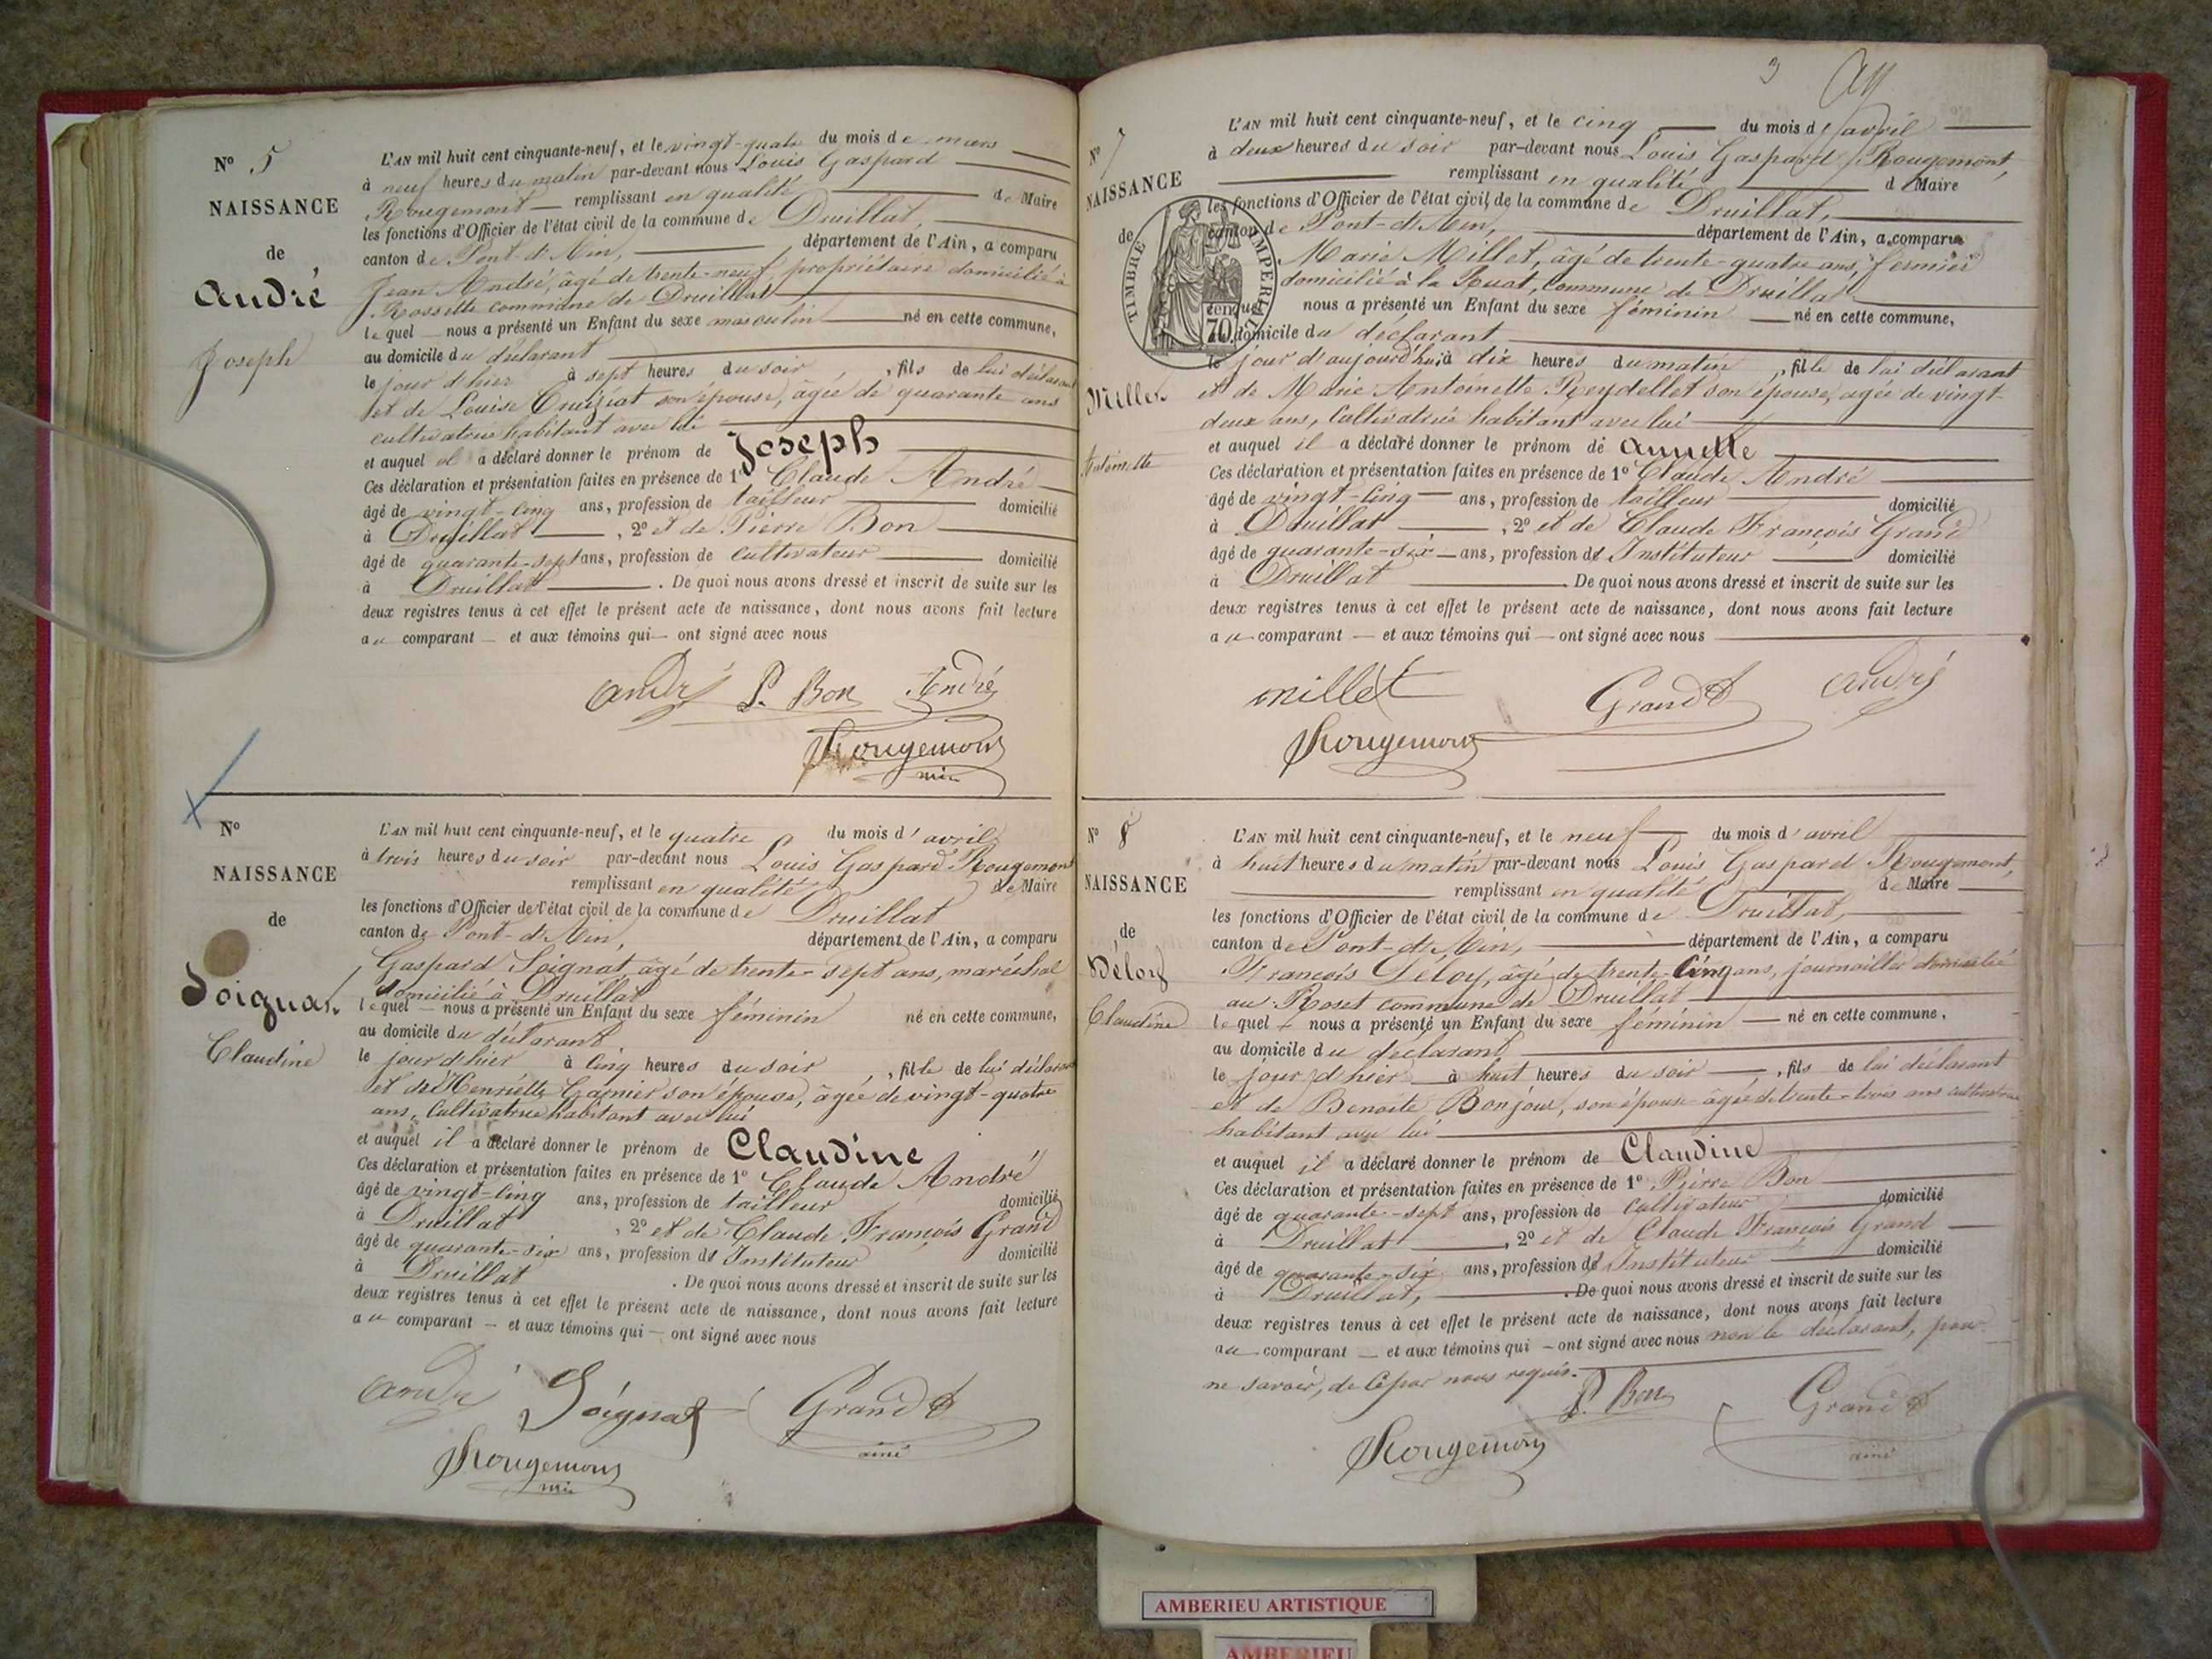 N° 5
NAISSANCE
de
André
Joseph
L'AN mil huit cent cinquante-neuf, et le vingt-quatre du mois de mars
à neuf heures du matin par-devant nous Louis Gaspard
Rougemont remplissant en qualité de Maire
les fonctions d'Officier de l'état civil de la commune de Druillat,
canton de Pont-d'Ain, département de l'Ain, a comparu
Jean André, âgé de trente-neuf, propriétaire domicilié à
Rossette commune de Druillat
lequel nous a présenté un Enfant du sexe masculin né en cette commune,
au domicile du déclarant
le jour d'hier à sept heures du soir, fils de lui déclarant
et de Louise Cruiziat son épouse, âgée de quarante ans
cultivatrice habitant avec lui
et auquel il a déclaré donner le prénom de Joseph
Ces déclaration et présentation faites en présence de 1° Claude André
âgé de vingt-cinq ans, profession de tailleur domicilié
à Druillat, 2° et de Pierre Bon
âgé de quarante-sept ans, profession de cultivateur domicilié
à Druillat. De quoi nous avons dressé et inscrit de suite sur les
deux registres tenus à cet effet le présent acte de naissance, dont nous avons fait lecture
au comparant — et aux témoins qui — ont signé avec nous
André P. Bon André
Rougemont
N°
NAISSANCE
de
Soignat
Claudine
L'AN mil huit cent cinquante-neuf, et le quatre du mois d'avril
à trois heures du soir par-devant nous Louis Gaspard Rougemont
remplissant en qualité de Maire
les fonctions d'Officier de l'état civil de la commune de Druillat
canton de Pont-d'Ain, département de l'Ain, a comparu
Gaspard Soignat, âgé de trente-sept ans, maréchal
domicilié à Druillat
lequel nous a présenté un Enfant du sexe féminin né en cette commune,
au domicile du déclarant
le jour d'hier à cinq heures du soir, fille de lui déclarant
et de Henriette Garnier son épouse, âgée de vingt-quatre
ans, cultivatrice habitant avec lui
et auquel il a déclaré donner le prénom de Claudine
Ces déclaration et présentation faites en présence de 1° Claude André
âgé de vingt-cinq ans, profession de tailleur domicilié
à Druillat, 2° et de Claude François Grand
âgé de quarante-six ans, profession d'Instituteur domicilié
à Druillat. De quoi nous avons dressé et inscrit de suite sur les
deux registres tenus à cet effet le présent acte de naissance, dont nous avons fait lecture
au comparant — et aux témoins qui — ont signé avec nous
André Soignat Grand
ainé
Rougemont
3
N° 7
NAISSANCE
de
Millet
Antoinette
TIMBRE IMPERIAL
70
L'AN mil huit cent cinquante-neuf, et le cinq du mois d'avril
à deux heures du soir par-devant nous Louis Gaspard Rougemont,
remplissant en qualité de Maire
les fonctions d'Officier de l'état civil de la commune de Druillat,
canton de Pont-d'Ain, département de l'Ain, a comparu
Marie Millet, âgé de trente-quatre ans, fermier
domicilié à la Ruat, commune de Druillat
lequel nous a présenté un Enfant du sexe féminin né en cette commune,
domicile du déclarant
le jour d'aujourd'hui à dix heures du matin, fille de lui déclarant
et de Marie Antoinette Reydellet son épouse, âgée de vingt-
deux ans, cultivatrice habitant avec lui
et auquel il a déclaré donner le prénom de Annette
Ces déclaration et présentation faites en présence de 1° Claude André
âgé de vingt-cinq ans, profession de tailleur domicilié
à Druillat, 2° et de Claude François Grand
âgé de quarante-six ans, profession d'Instituteur domicilié
à Druillat. De quoi nous avons dressé et inscrit de suite sur les
deux registres tenus à cet effet le présent acte de naissance, dont nous avons fait lecture
au comparant — et aux témoins qui — ont signé avec nous
Millet Grand André
Rougemont
N° 8
NAISSANCE
de
Déloy
Claudine
L'AN mil huit cent cinquante-neuf, et le neuf du mois d'avril
à huit heures du matin par-devant nous Louis Gaspard Rougemont,
remplissant en qualité de Maire
les fonctions d'Officier de l'état civil de la commune de Druillat,
canton de Pont-d'Ain, département de l'Ain, a comparu
François Déloy, âgé de trente-cinq ans, journaillier domicilié
au Roset commune de Druillat
lequel nous a présenté un Enfant du sexe féminin né en cette commune,
au domicile du déclarant
le jour d'hier à huit heures du soir, fils de lui déclarant
et de Benoite Bonjour, son épouse âgée de trente-trois ans cultivatrice
habitant avec lui
et auquel il a déclaré donner le prénom de Claudine
Ces déclaration et présentation faites en présence de 1° Pierre Bon
âgé de quarante-sept ans, profession de cultivateur domicilié
à Druillat, 2° et de Claude François Grand
âgé de quarante-six ans, profession d'Instituteur domicilié
à Druillat, De quoi nous avons dressé et inscrit de suite sur les
deux registres tenus à cet effet le présent acte de naissance, dont nous avons fait lecture
au comparant — et aux témoins qui — ont signé avec nous non le déclarant, pour
ne savoir, de ce par nous requis.
P. Bon Grand
ainé
Rougemont
AMBERIEU ARTISTIQUE
AMBERIEU